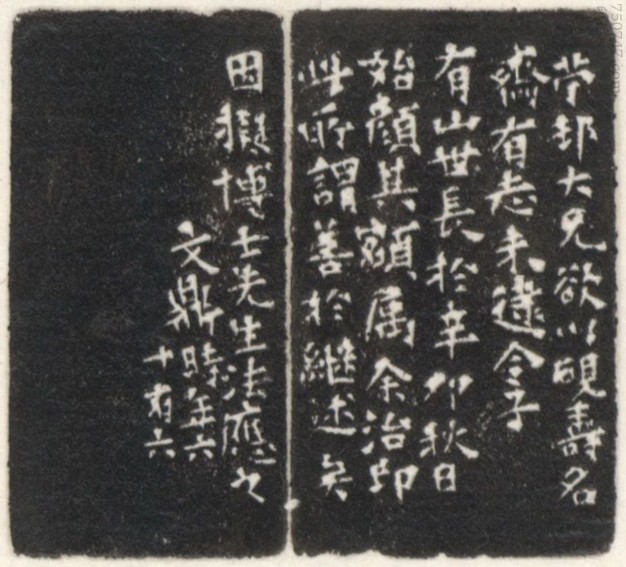 芾邨大兄欲以硯壽名
齋有志未逮令子
有山世長於辛卯秋日
始顏其額属余治印
此所謂善於継述矣
因擬博士先生法應之
文鼎時年六
十有六